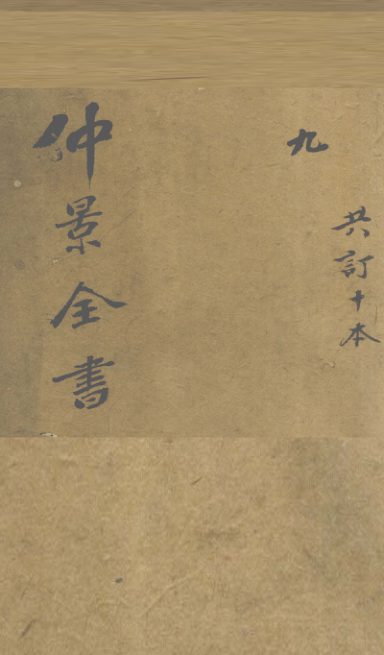 共訂十本
九
仲景全書